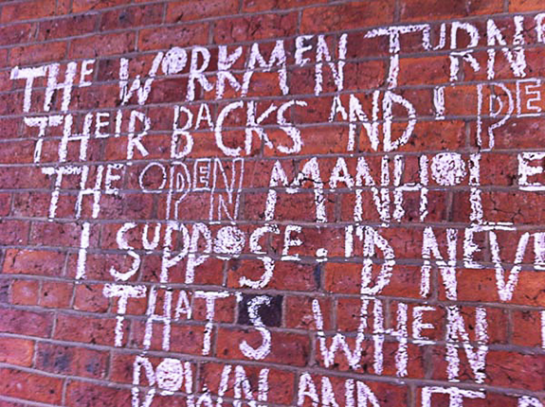 THE WORKMEN TURNE
THEIR BACKS AND I PE
THE OPEN MANHOLE
I SUPPOSE. I'D NEV
THAT'S WHEN I
DOWN AND